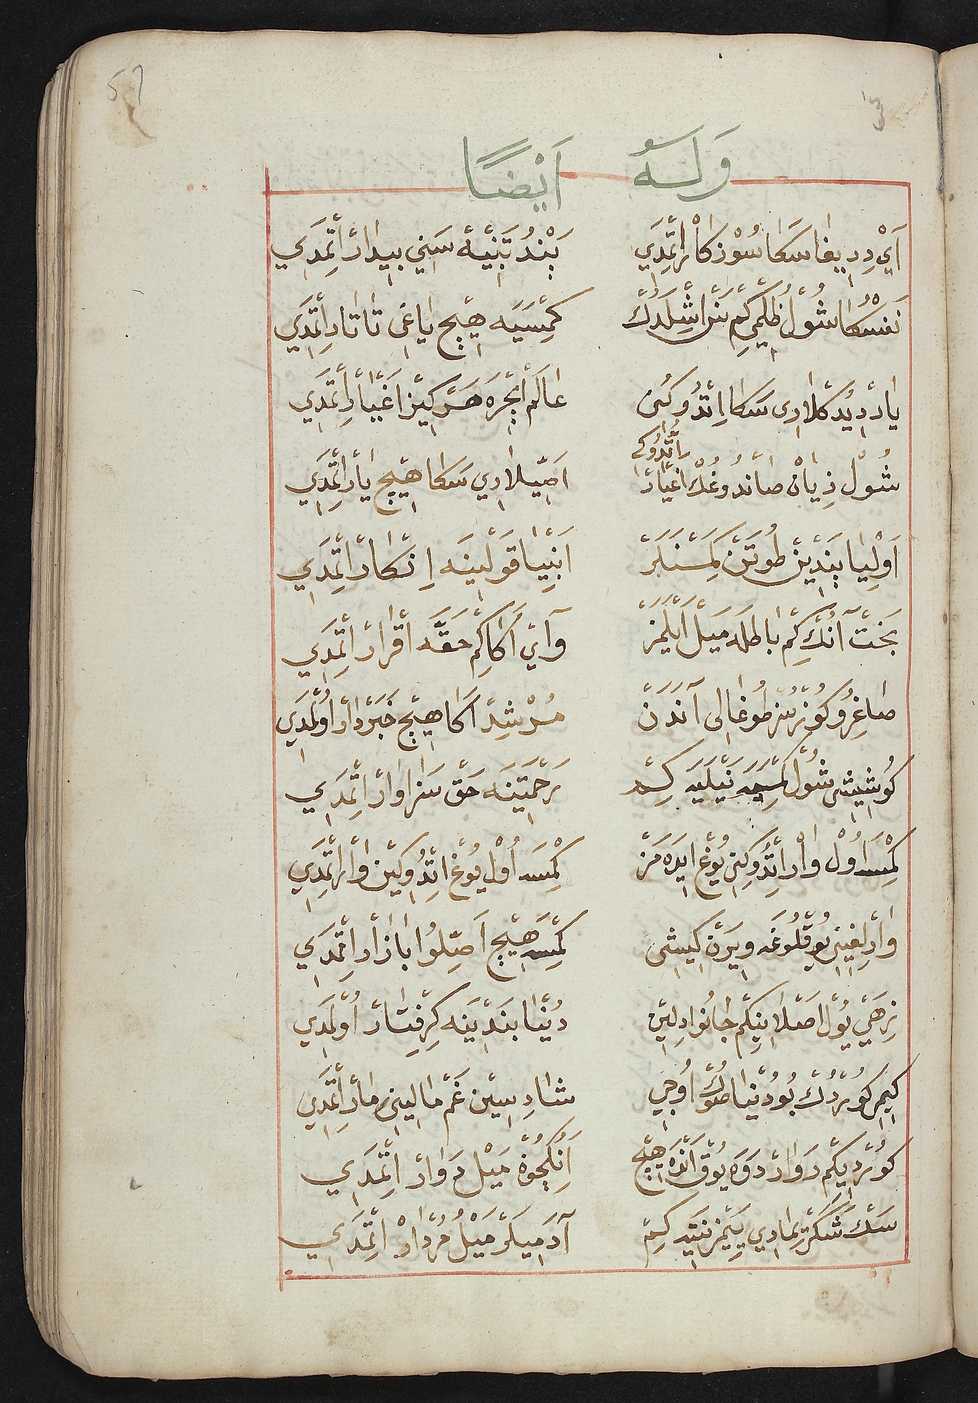 57
وَلَهُ اَيْضًا
اَيْ دِدِيغَا سَكَا سُوْز كَارْ اِتْمَدِي بَنْدُ تَنِيْهَ سَنِي بِيدَارْ اِتْمَدِي
نَفْسُكَا شُولْ ظُلْمِي كِمْ سَنْ اِشْلَدُكْ كِمْسَيَه هِيْچ يَاغِي تَاتَارْ اِتْمَدِي
يَادْ دِيُدُكْلَارِى سَكَا اِتْدُوكُنِى عَالَم اِچْرَه هَرْكِيز اَغْيَارْ اِتْمَدِي
شُولْ زِيَانْ صَانْدُوغُكْ اَغْيَارْ اِتْدُوكِى اَصِّيلَارِي سَكَا هِيْچ يَارْ اِتْمَدِي
اَوْلِيَا بَنْدِينْ طُوتَنْ كِمْسَنَلَرْ اَنْبِيَا قَوْلِينَه اِنْكَارْ اِتْمَدِي
بَخْتْ آنُكْ كِمْ بَاطِلَه مَيْل اَيْلَمَزْ وَايْ اَكَا كِمْ حَقَّه اِقْرَارْ اِتْمَدِي
صَاغِرُ و كُوزْسُزْ طُوغَالِى آنَدَنْ مُرْشِدْ اَكَا هِيْچ خَبَرْدَارْ اُولْمَدِي
كُوشِشِى شُولْ كِمْسَيَه نَيْلَيَه كِمْ رَحْمَتِينَه حَقْ سَزَاوَارْ اِتْمَدِي
كِمْسَه اُولْ وَارْ اِتْدُوكِنِى يُوغْ اِيدَه مَزْ كِمْسَه اُولْ يُوغْ اِتْدُوكِينْ وَارْ اِتْمَدِي
وَارْلِغِينِى يُوقْلُوغَه وِيرَنْ كِيشِى كِمْسَه هِيْچ اَصِّلُو بَازَارْ اِتْمَدِي
زِهَيْ يُولْ اَصْلَانِكِمْ جَانُوَارْلَيِنْ دُنْيَا بَنْدِينَه كِرِفْتَارْ اُولْمَدِي
كِيمِ كُورْدُكْ بُو دُنْيَا طُوكْ اُوجِي شَادِيسِينْ غَمْ مَالِينِى مَارْ اِتْمَدِي
كُورْدِيكِمْ دَوَارْ دَوَه يُوقْ اَنْدَه هِيْچ اَنُكِچُونْ مَيْلِ دَوَارْ اِتْمَدِي
سَكْ شَكَرْ يِمَادِي يِيَمَزْ نِتَه كِمْ آدَمِيلَرْ مَيْلُ مُرْدَارْ اِتْمَدِي